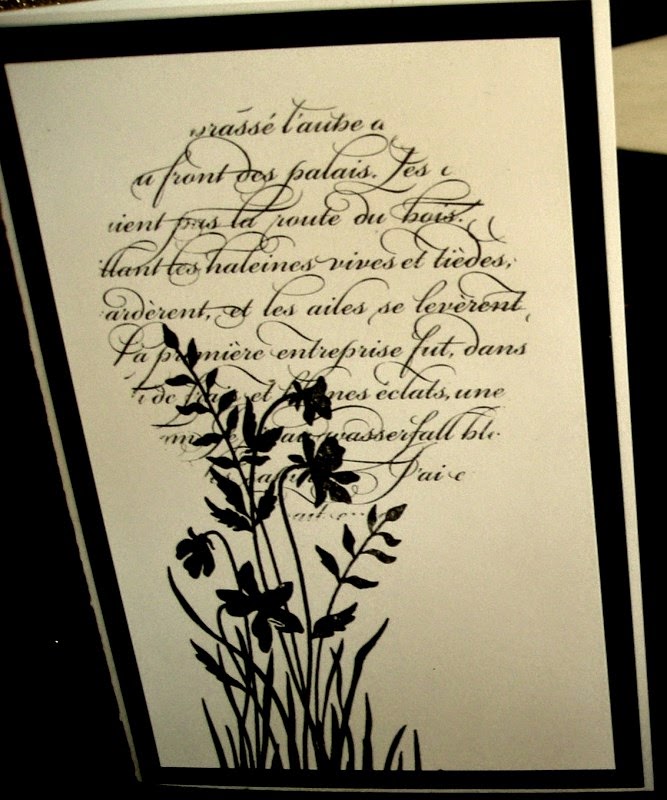 brassé l'aube a
u front des palais. Les
ient pas la route du bois.
llant les haleines vives et tièdes,
ardèrent, et les ailes se levèrent
la première entreprise fut, dans
de frais et blêmes éclats, une
wasserfall bl
J'ai